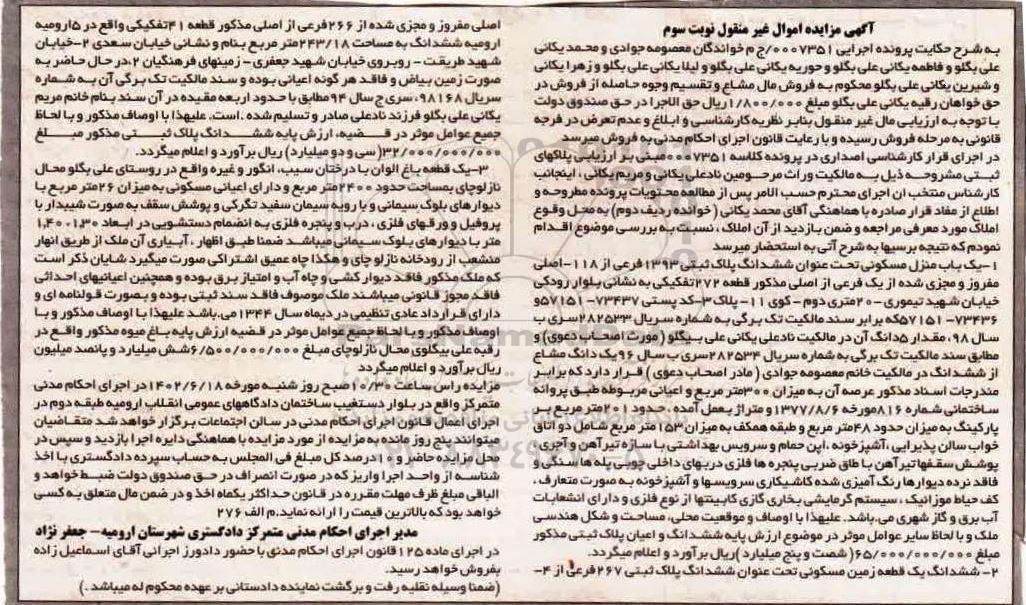 آگهی مزایده اموال غیر منقول نوبت سوم
به شرح حکایت پرونده اجرایی ۰۰۰۷۳۵۱/ج م خواندگان معصومه جوادی و محمد یکانی
علی بگلو و فاطمه یکانی علی بگلو و حوریه یکانی علی بگلو و لیلا یکانی علی بگلو و زهرا یکانی
و شیرین یکانی علی بگلو محکوم به فروش مال مشاع و تقسیم وجوه حاصله از فروش در
حق خواهان رقیه یکانی علی بگلو مبلغ ۱/۸۰۰/۰۰۰ ریال حق الاجرا در حق صندوق دولت
با توجه به ارزیابی مال غیر منقول بنابر نظریه کارشناسی و ابلاغ و عدم تعرض در فرجه
قانونی به مرحله فروش رسیده و با رعایت قانون اجرای احکام مدنی به فروش میرسد
در اجرای قرار کارشناسی اصداری در پرونده کلاسه ۰۰۰۷۳۵۱ مبنی بر ارزیابی پلاکهای
ثبتی مشروحه ذیل به مالکیت وراث مرحومین نادعلی یکانی و مریم یکانی ، اینجانب
کارشناس منتخب ان اجرای محترم حسب الامر پس از مطالعه محتویات پرونده مطروحه و
اطلاع از مفاد قرار صادره با هماهنگی آقای محمد یکانی ( خوانده ردیف دوم) به محل وقوع
املاک مورد معرفی مراجعه و ضمن بازدید از آن املاک ، نسبت به بررسی موضوع اقدام
نمودم که نتیجه برسیها به شرح آتی به استحضار میرسد
۱-یک باب منزل مسکونی تحت عنوان ششدانگ پلاک ثبتی ۱۳۹۳ فرعی از ۱۱۸-اصلی
مفروز و مجزی شده از یک فرعی از اصلی مذکور قطعه ۲۷۲ تفکیکی به نشانی بلوار رودکی
خیابان شهید تیموری -۲۰ متری دوم - کوی ۱۱- پلاک ۳-کد پستی ۷۳۴۳۷-۵۷۱۵۱ و
۷۳۴۳۶-۵۷۱۵۱ که برابر سند مالکیت تک برگی به شماره سریال ۲۸۲۵۳۳ سری ب
سال ۹۸، مقدار ۵ دانگ آن در مالکیت نادعلی یکانی علی بیگلو ( مورث اصحاب دعوی) و
مطابق سند مالکیت تک برگی به شماره سریال ۲۸۲۵۳۴ سری ب سال ۹۶ یک دانگ مشاع
از ششدانگ در مالکیت خانم معصومه جوادی ( مادر اصحاب دعوی ) قرار دارد که برابر
مندرجات اسناد مذکور عرصه آن به میزان ۳۰۰ متر مربع و اعیانی مربوطه طبق پروانه
ساختمانی شماره ۸۱۶ مورخه ۱۳۷۷/۸/۶ و متراژ بعمل آمده ، حدود ۲۰۱ متر مربع بر
پارکینگ به میزان حدود ۴۸ متر مربع و طبقه همکف به میزان ۱۵۳ متر مربع شامل دو اتاق
خواب سالن پذیرایی ،آشپزخونه ،این حمام و سرویس بهداشتی با سازه تیرآهن و آجری
پوشش سقفها تیرآهن با طاق ضربی پنجره ها فلزی دربهای داخلی چوبی پله ها سنگی و
فاقد نرده دیوارها رنگ آمیزی شده کاشیکاری سرویسها و آشپزخونه به صورت متعارف ،
کف حیاط موزائیک ، سیستم گرمایشی بخاری گازی کابینتها از نوع فلزی و دارای انشعابات
آب برق و گاز شهری می.باشد. علیهذا با اوصاف و موقعیت محلی، مساحت و شکل هندسی
ملک و با لحاظ سایر عوامل موثر در موضوع ارزش پایه ششدانگ و اعیان پلاک ثبتی مذکور
مبلغ ۶۵/۰۰۰/۰۰۰/۰۰۰( شصت و پنج میلیارد )ریال برآورد و اعلام میگردد.
۲- ششدانگ یک قطعه زمین مسکونی تحت عنوان ششدانگ پلاک ثبتی ۲۶۷ فرعی از ۴-
اصلی مفروز و مجزی شده از ۲۶۶ فرعی از اصلی مذکور قطعه ۴۱ تفکیکی واقع در ۵ ارومیه
ارومیه ششدانگ به مساحت ۲۴۳/۱۸ متر مربع بنام و نشانی خیابان سعدی ۲-خیابان
شهید طریقت - روبروی خیابان شهید جعفری - زمینهای فرهنگیان ۲،در حال حاضر به
صورت زمین بیاض و فاقد هر گونه اعیانی بوده و سند مالکیت تک برگی آن به شماره
سریال ۹۸۱۶۸، سری ج سال ۹۴ مطابق با حدود اربعه مقیده در آن سند بنام خانم مریم
یکانی علی بگلو فرزند نادعلی صادر و تسلیم شده .است. علیهذا با اوصاف مذکور و با لحاظ
جمیع عوامل موثر در قضیه، ارزش پایه ششدانگ پلاک ثبتی مذکور مبلغ
۳۲/۰۰۰/۰۰۰/۰۰۰( سی و دو میلیارد) ریال برآورد و اعلام میگردد.
۳-یک قطعه باغ الوان با درختان سیب، انگور و غیره واقع در روستای علی بگلو محال
نازلوچای بمساحت حدود ۲۴۰۰ متر مربع و دارای اعیانی مسکونی به میزان ۲۶ متر مربع با
دیوارهای بلوک سیمانی و با رویه سیمان سفید تگرکی و پوشش سقف به صورت شیبدار با
پروفیل و ورقهای فلزی ، درب و پنجره فلزی به انضمام دستشویی در ابعاد ۱.۳۰،۱.۴۰
متر با دیوارهای بلوک سیمانی میباشد ضمنا طبق اظهار ، آبیاری آن ملک از طریق انهار
منشعب از رودخانه نازلو چای و هکذا چاه عمیق اشتراکی صورت میگیرد شایان ذکر است
که ملک مذکور فاقد دیوار کشی و چاه آب و امتیاز برق بوده و همچنین اعیانیهای احداثی
فاقد مجوز قانونی میباشند ملک موصوف فاقد سند ثبتی بوده و بصورت قولنامه ای و
دارای قرارداد عادی تنظیمی در دیماه سال ۱۳۴۴ می.باشد علیهذا با اوصاف مذکور و با
اوصاف مذکور و با لحاظ جمیع عوامل موثر در قضیه ارزش پایه باغ میوه مذکور واقع در
رقبه علی بیگلوی محال نازلوچای مبلغ ۶/۵۰۰/۰۰۰/۰۰۰ شش میلیارد و پانصد میلیون
ریال برآورد و اعلام میگردد
مزایده راس ساعت ۱۰/۳۰ صبح روز شنبه مورخه ۱۴۰۲/۶/۱۸ در اجرای احکام مدنی
متمرکز واقع در بلوار دستغیب ساختمان دادگاههای عمومی انقلاب ارومیه طبقه دوم در
اجرای اعمال قانون اجرای احکام مدنی در سالن اجتماعات برگزار خواهد شد متقاضیان
میتوانند پنج روز مانده به مزایده از مورد مزایده با هماهنگی دایره اجرا بازدید و سپس در
محل مزایده حاضر و ۱۰ درصد کل مبلغ فی المجلس به حساب سپرده دادگستری با اخذ
شناسه از واحد اجرا واریز که در صورت انصراف در حق صندوق دولت ضبط خواهد و
الباقی مبلغ ظرف مهلت مقرره در قانون حداکثر یکماه اخذ و در ضمن مال متعلق به کسی
خواهد بود که بالاترین قیمت را ارائه نماید.م الف ۲۷۶
مدیر اجرای احکام مدنی متمرکز دادگستری شهرستان ارومیه- جعفر نژاد
در اجرای ماده ۱۲۵ قانون اجرای احکام مدنی با حضور دادورز اجرائی آقای اسماعیل زاده
بفروش خواهد رسید.
(ضمنا وسیله نقلیه رفت و برگشت نماینده دادستانی بر عهده محکوم له میباشد .)